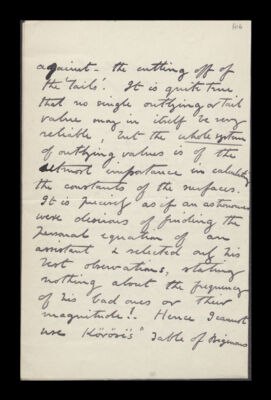 106
against – the cutting off of
the 'tails'. It is quite true
that no single outlying or tail
value may in itself be very
reliable, but the whole system
of outlying values is of the
utmost importance in calculating
the constants of the surfaces.
It is precisely as if an astronomer
were desirous of finding the
personal equation of an
assistant & selected only his
best observations, stating
nothing about the frequency
of his bad ones or their
magnitude! – Hence I cannot
use Körösi's Table of Bigamous